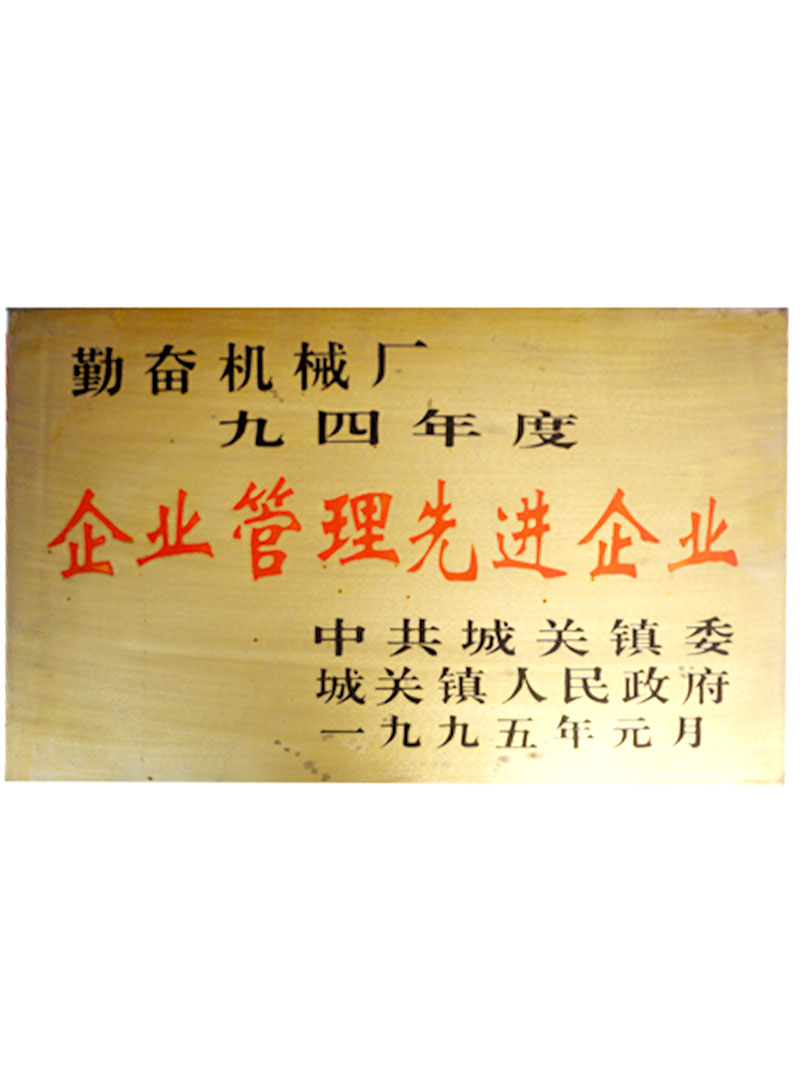 勤奋机械厂
九四年度
企业管理先进企业
中共城关镇委
城关镇人民政府
一九九五年元月